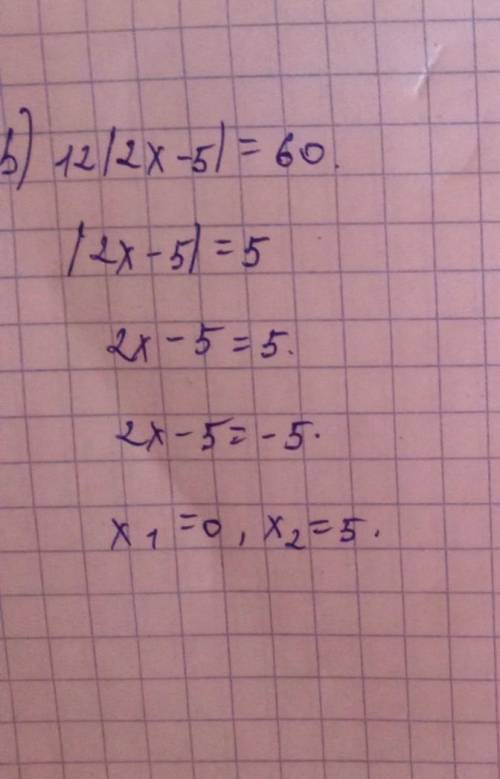 b) 12|2x-5| = 60.
|2x-5| = 5
2x-5 = 5.
2x-5 = -5.
x₁ = 0, x₂ = 5.